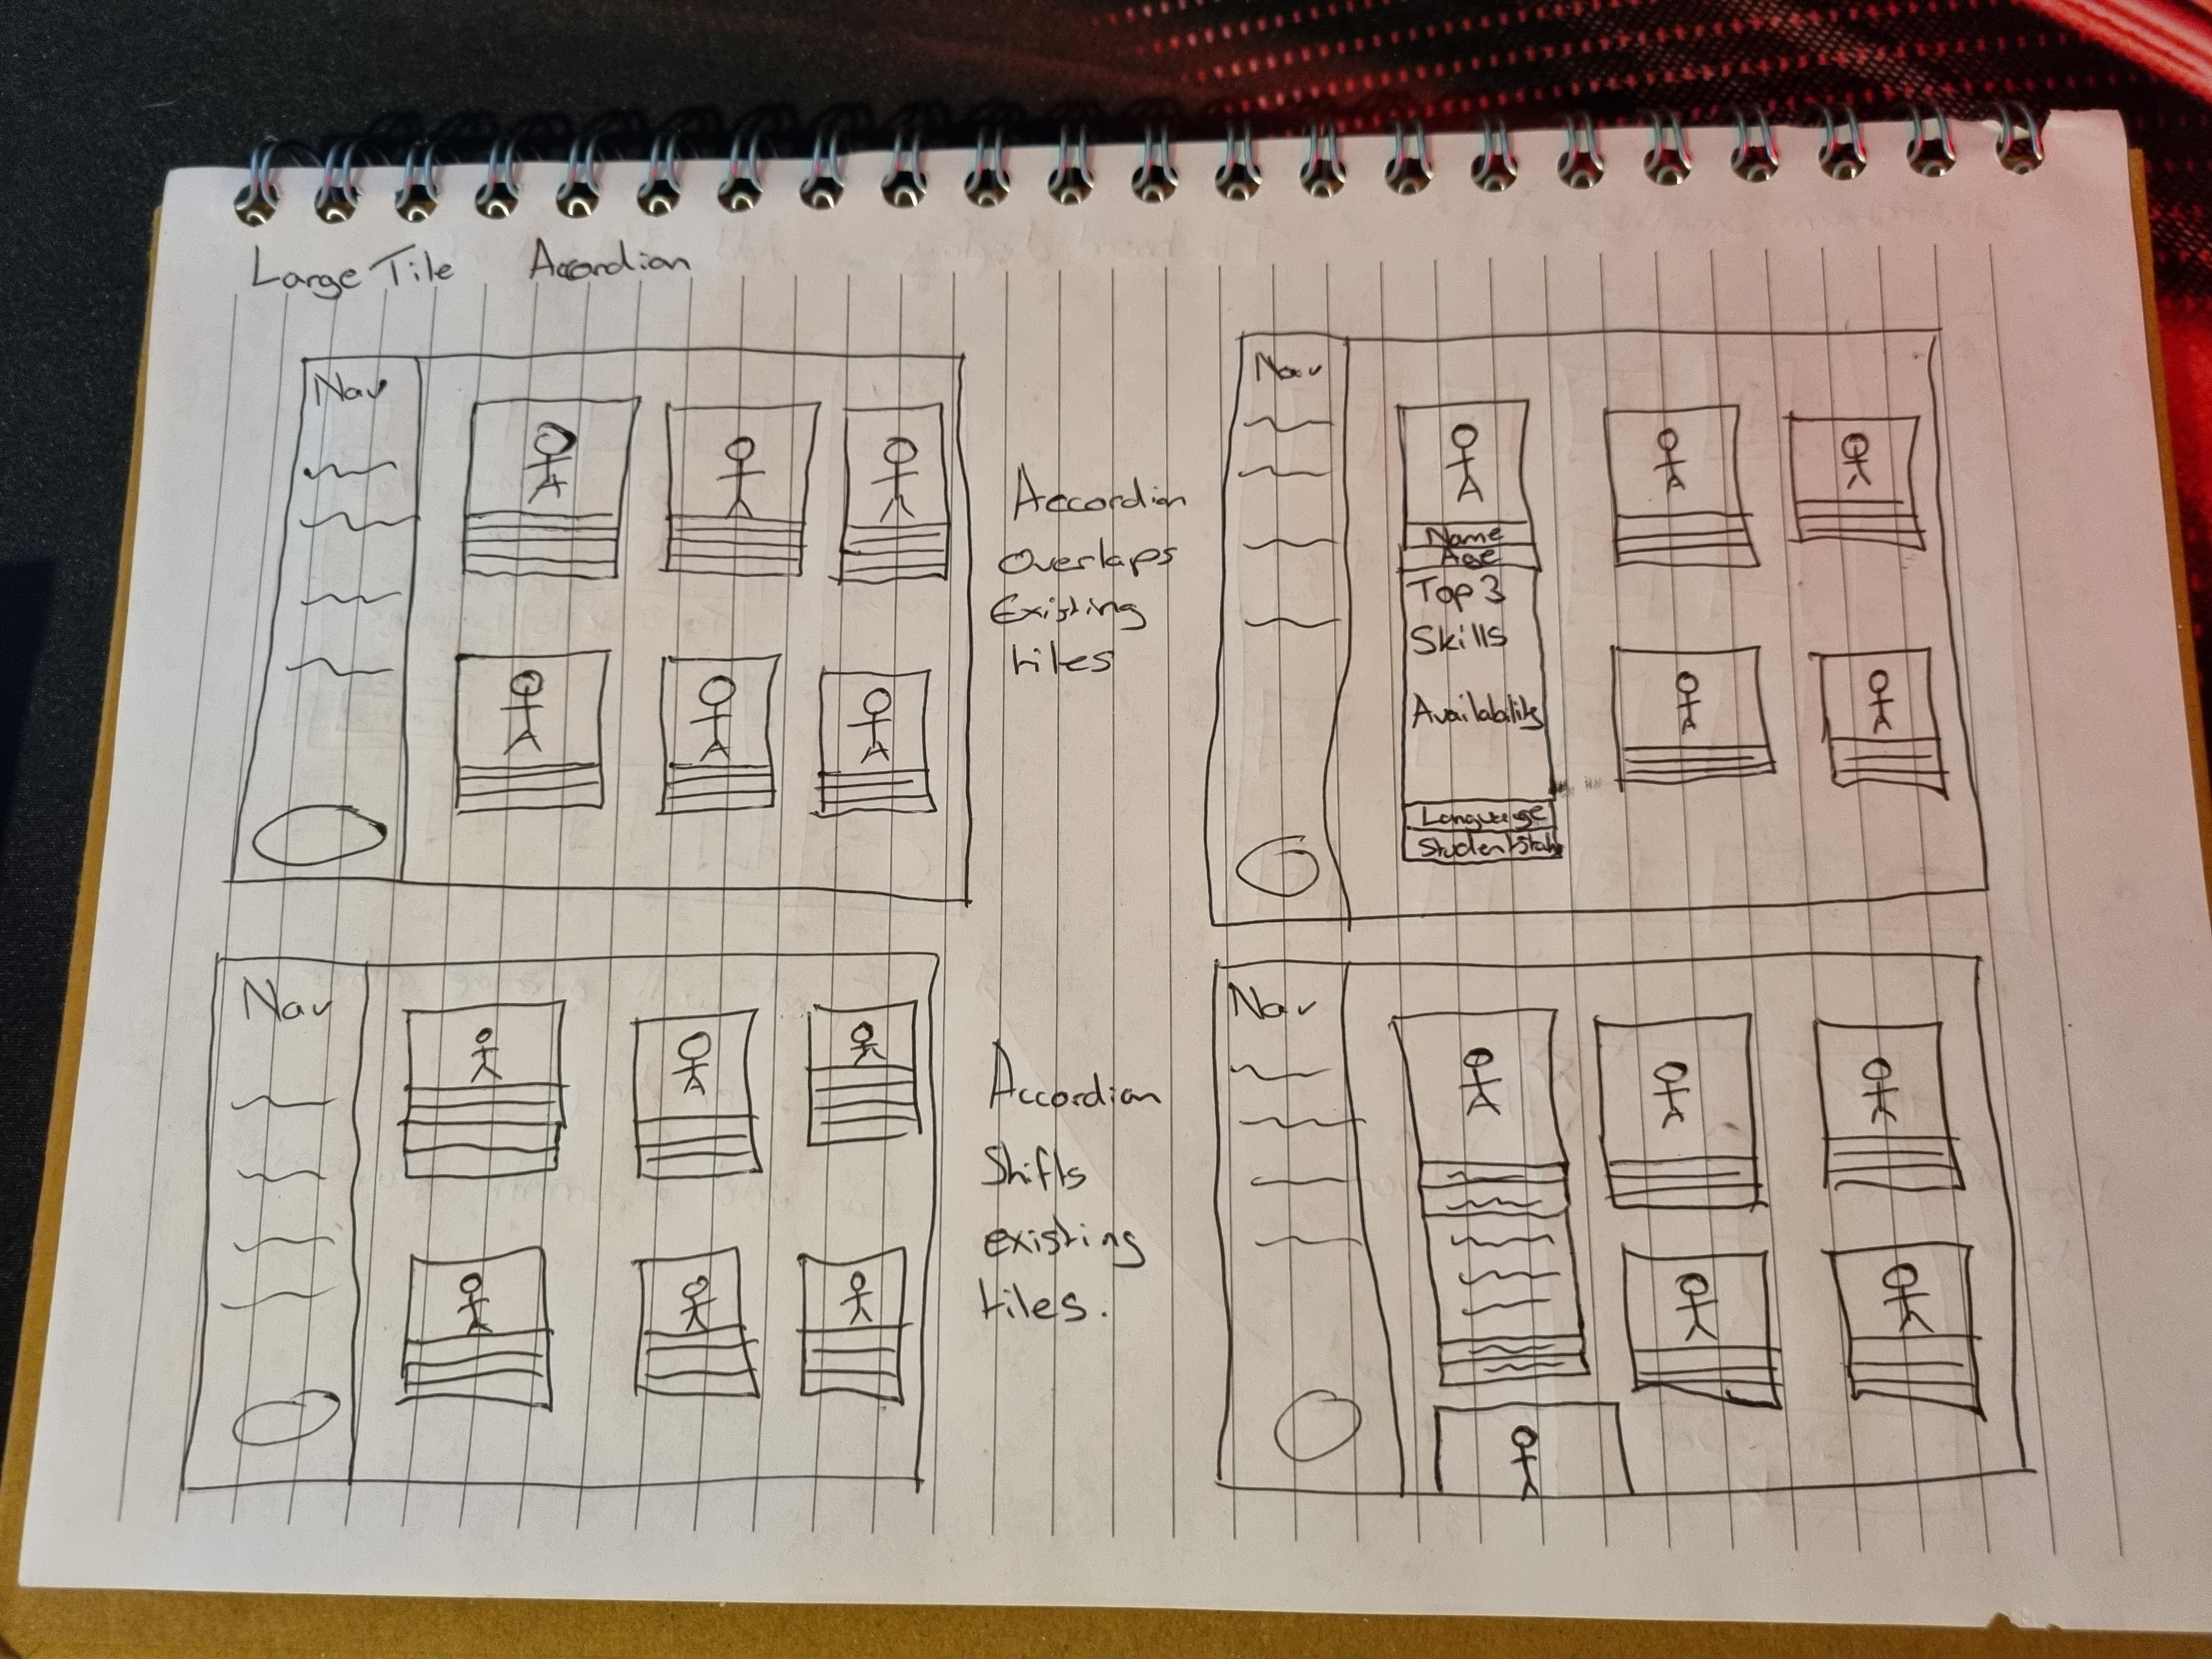 Large Tile Accordian
Nav
Accordian
Overlaps
Existing
tiles
Nav
Name
Age
Top 3
Skills
Availability
Language
Student Stat
Nav
Accordian
Shifts
existing
tiles.
Nav